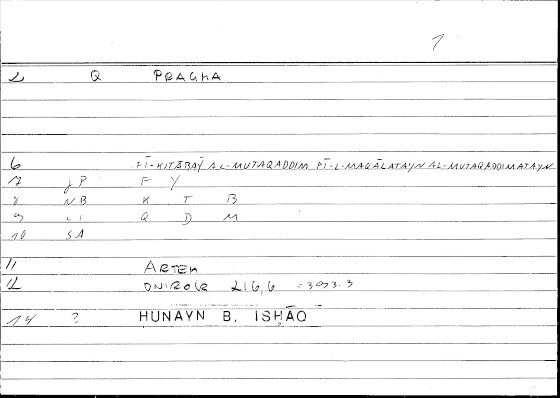 7
2 Q PRAGMA
6 FĪ-KITĀBAY AL-MUTAQADDIM FĪ-L-MAQĀLATAYN AL-MUTAQADDIMATAYN
7 gP F Y
8 NB K T B
9 LI Q D M
10 SA
11 ARTEM
12 ONIROCR 216,6
14 ? HUNAYN B. ISḤĀQ